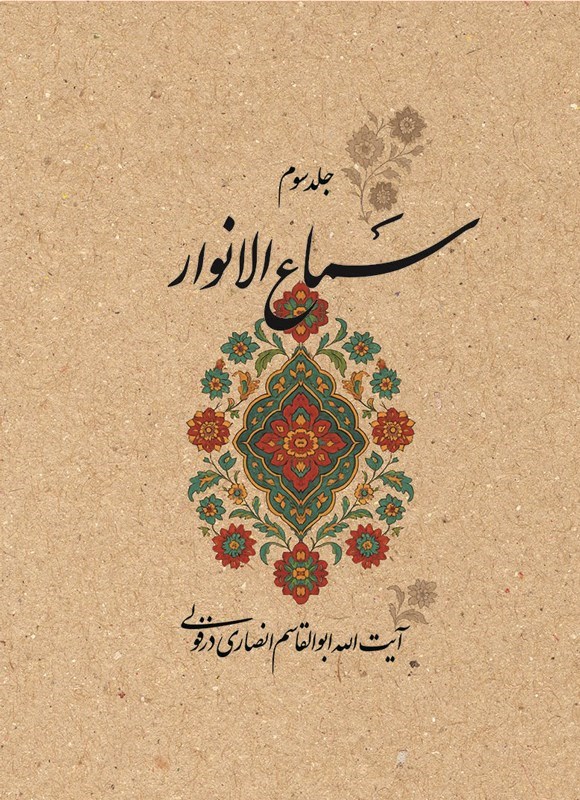 جلد سوم
سَماع الانوار
آیت الله ابوالقاسم انصاری دزفولی